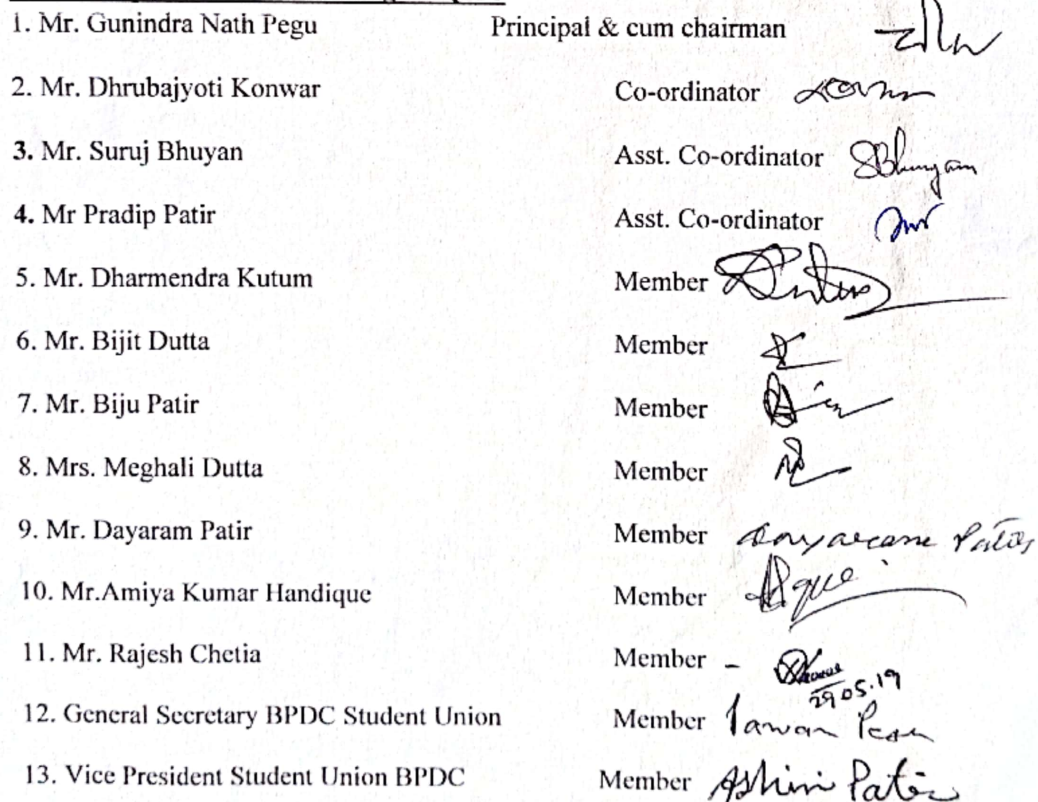 1. Mr. Gunindra Nath Pegu Principal & cum chairman
2. Mr. Dhrubajyoti Konwar Co-ordinator
3. Mr. Suruj Bhuyan Asst. Co-ordinator SBhuyan
4. Mr Pradip Patir Asst. Co-ordinator
5. Mr. Dharmendra Kutum Member
6. Mr. Bijit Dutta Member
7. Mr. Biju Patir Member
8. Mrs. Meghali Dutta Member
9. Mr. Dayaram Patir Member Dayaram Patir
10. Mr.Amiya Kumar Handique Member
11. Mr. Rajesh Chetia Member -
29.05.19
12. General Secretary BPDC Student Union Member
13. Vice President Student Union BPDC Member Ashini Patir